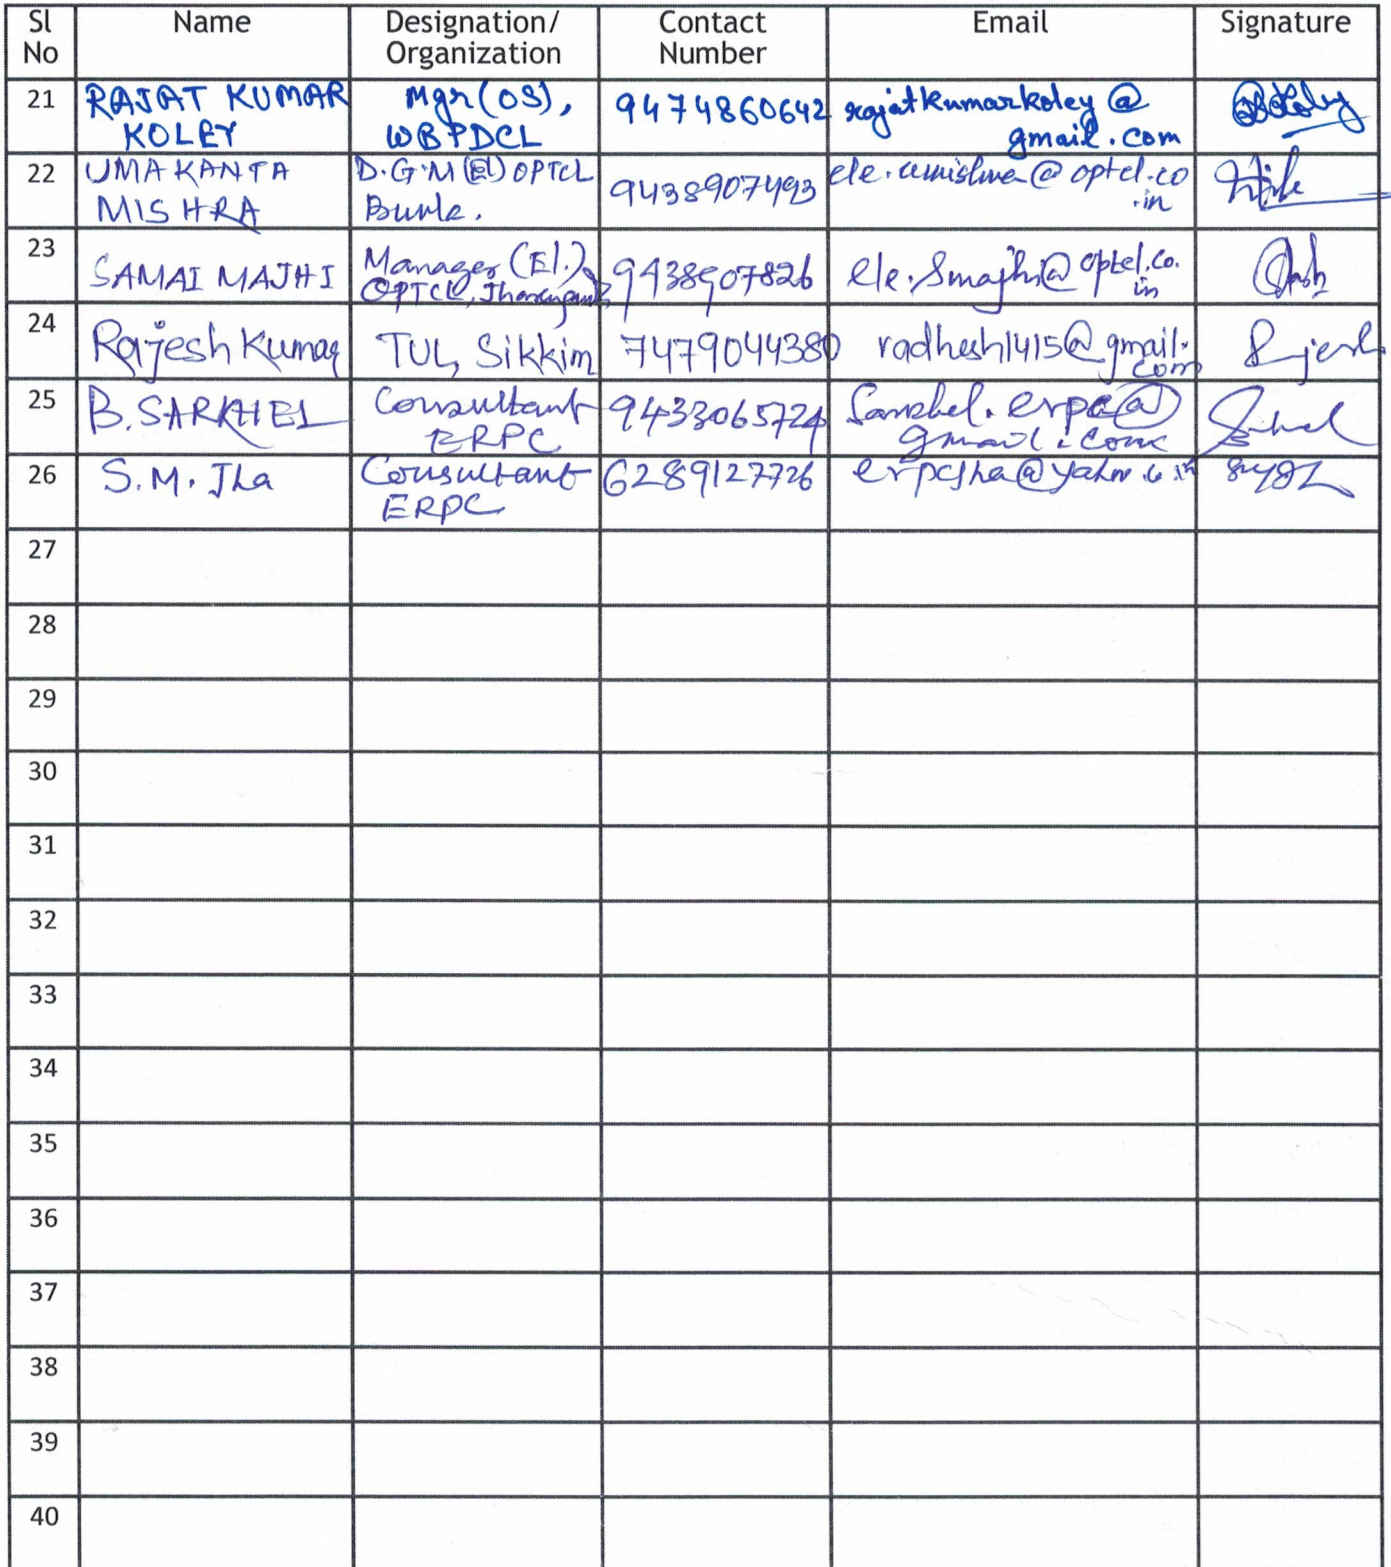 Sl No Name Designation/ Organization Contact Number Email Signature
21 RAJAT KUMAR KOLEY Mgr(OS), WBPDCL 9474860642 rajatkumarkoley@gmail.com
22 UMAKANTA MISHRA D.G.M (El) OPTCL Burla. 9438907493 ele.umishra@optcl.co.in
23 SAMAI MAJHI Manager (El.) OPTCL, 9438907826 ele.smajhi@optcl.co.in
24 Rajesh Kumar TUL, Sikkim 7479044380 radhesh1415@gmail.com
25 B. SARKHEL Consultant ERPC 9433065724 Sarkhel.erpc@gmail.com
26 S.M. Jha Consultant ERPC 6289127726 erpcjha@yahoo.co.in
27
28
29
30
31
32
33
34
35
36
37
38
39
40